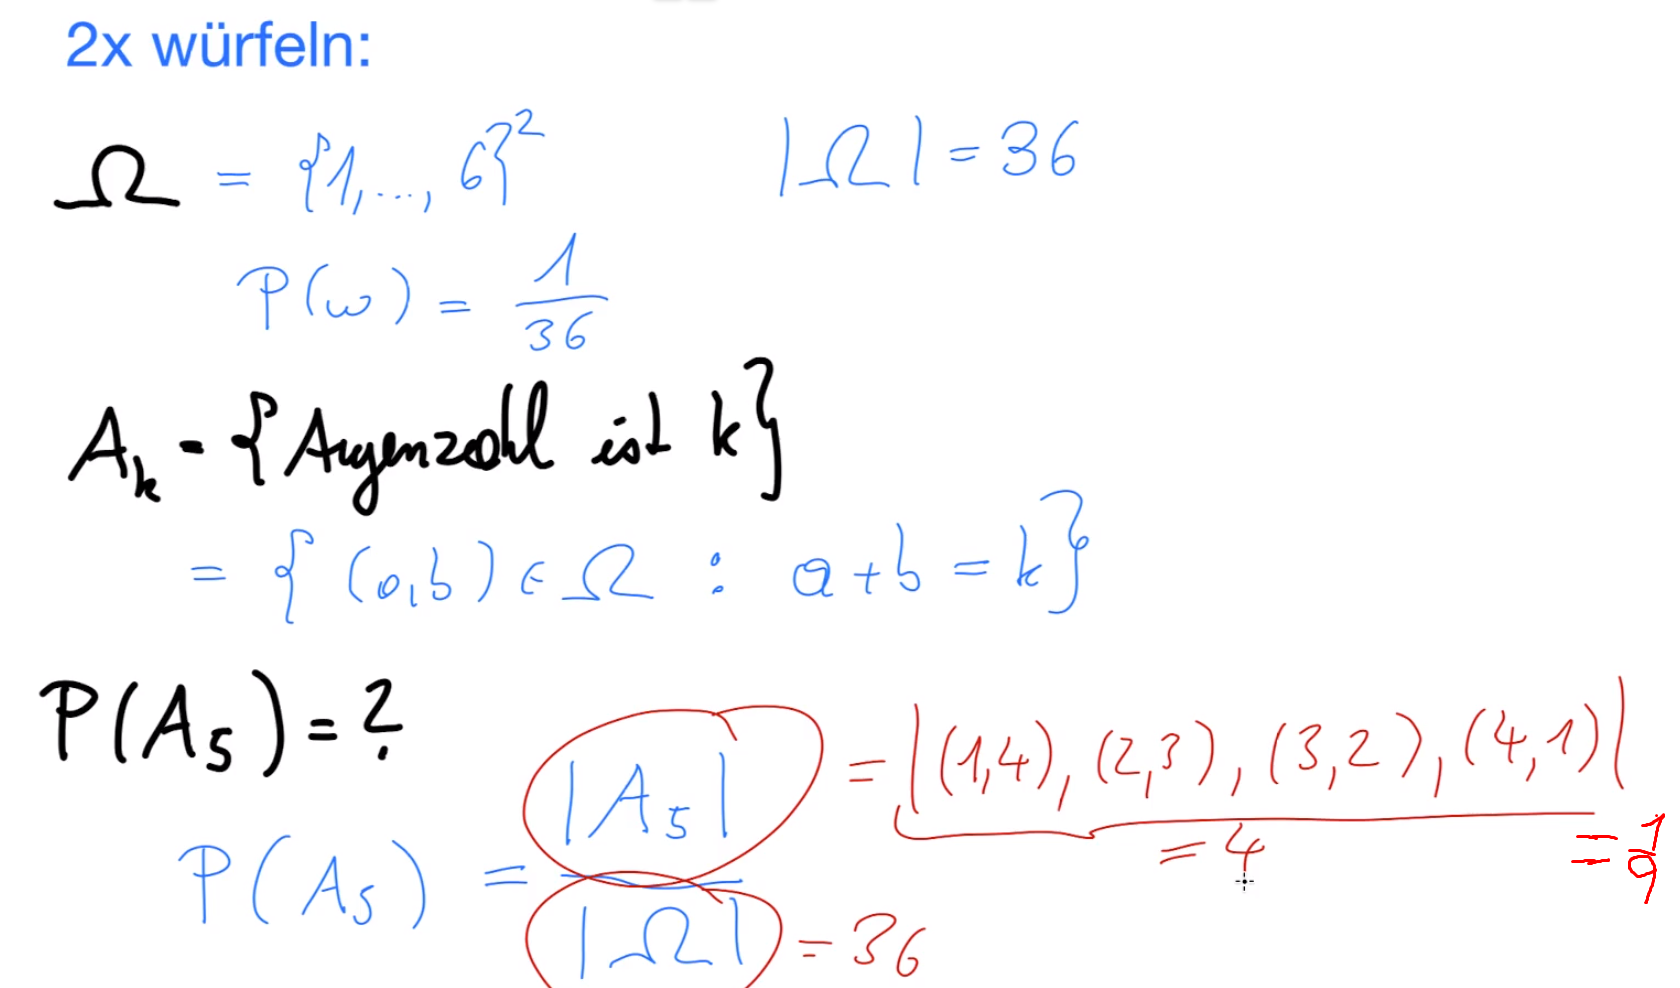 2x würfeln:
Ω = {1,..., 6}² |Ω| = 36
P(ω) = 1/36
A_k = {Augenzahl ist k}
= {(a,b) ∈ Ω : a+b = k}
P(A_5) = ?
P(A_5) = |A_5| / |Ω|
|A_5| = |(1,4), (2,3), (3,2), (4,1)|
= 4
= 1/9
|Ω| = 36